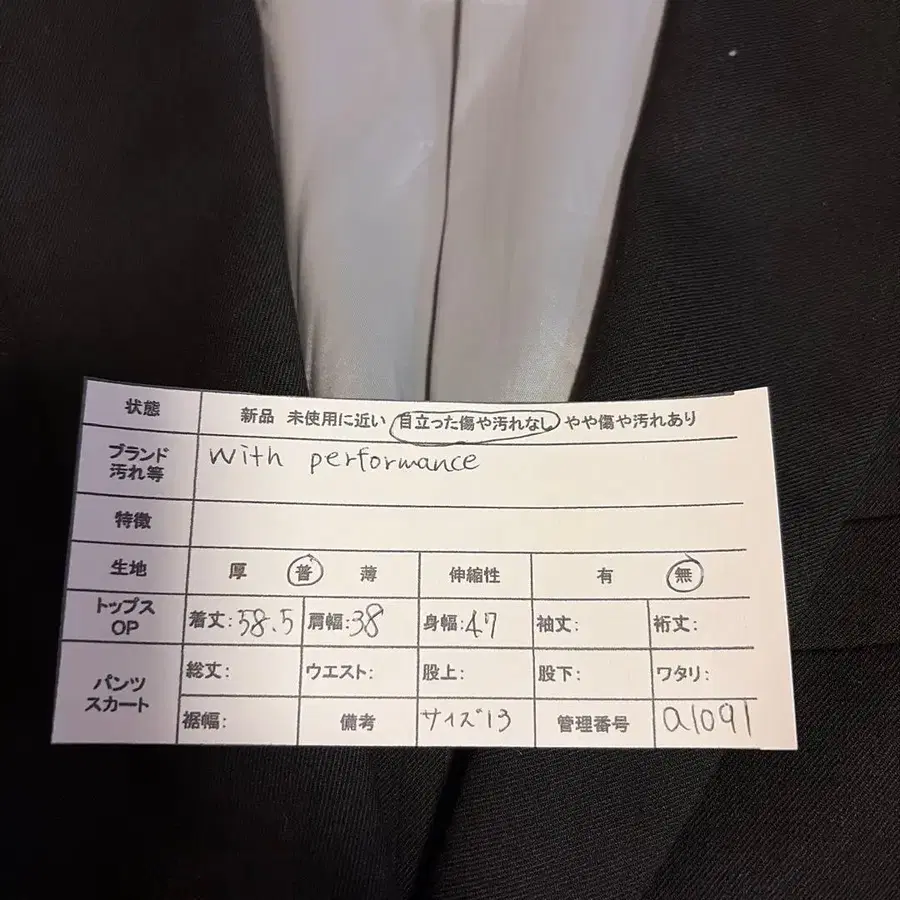 状態 新品 未使用に近い 目立った傷や汚れなし やや傷や汚れあり
ブランド
汚れ等
with performance
特徴
生地 厚 普 薄 伸縮性 有 無
トップス
OP
着丈:58.5 肩幅:38 身幅:47 袖丈: 裄丈:
パンツ
スカート
総丈: ウエスト: 股上: 股下: ワタリ:
裾幅: 備考 サイズ13 管理番号 a1091